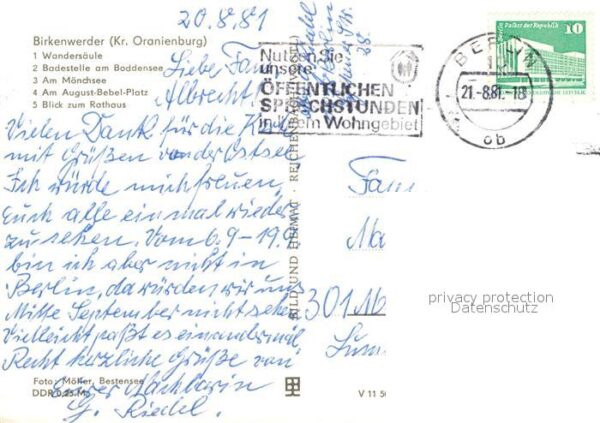 20.8.81
Birkenwerder (Kr. Oranienburg)
1 Wandersäule
2 Badestelle am Boddensee
3 Am Mönchsee
4 Am August-Bebel-Platz
5 Blick zum Rathaus
Liebe Fam
Albrecht
Vielen Dank für die Kar
mit Grüßen von der Ostsee
Ich würde mich freuen,
Euch alle einmal wieder
zu sehen. Vom 6.9-19.9
bin ich aber nicht in
Berlin, da würden wir uns
Mitte September nicht sehen
Vielleicht paßt es ein andermal
Recht herzliche Grüße von
Eurer Nachbarin
G. Riedel.
Foto: Möller, Bestensee
DDR 0,25 M
BILD UND HEIMAT · REICHENBACH
V 11 50
Nutzen Sie
unsere
ÖFFENTLICHEN
SPRECHSTUNDEN
in Ihrem Wohngebiet
BERLIN
1
21.-8.81.-18
ob
Berlin Palast der Republik
10
Fam
Ma
301 Mb
privacy protection
Datenschutz